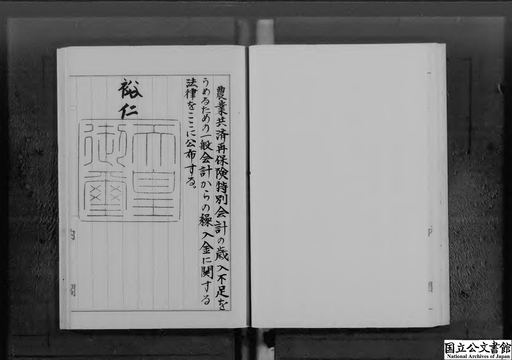 農業共済再保険特別会計の歳入不足を
うめるための一般会計からの繰入金に関する
法律をここに公布する。
裕仁
天皇
御璽
国立公文書館
National Archives of Japan